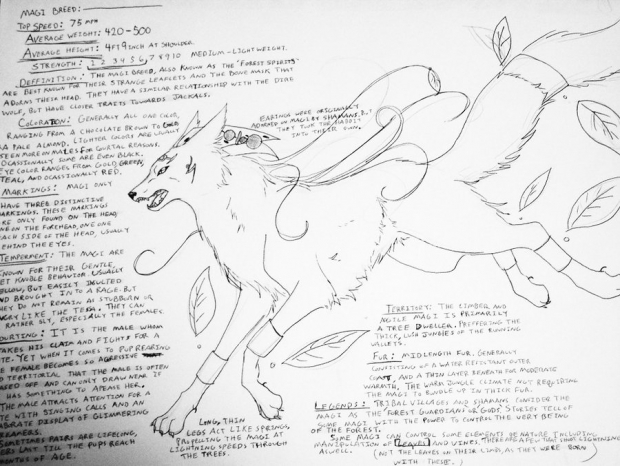 MAGI BREED:
TOP SPEED: 75 MPH
AVERAGE WEIGHT: 420-500
AVERAGE HEIGHT: 4FT 9 INCH AT SHOULDER
STRENGTH: 1 2 3 4 5 6, 7 8 9 10 MEDIUM-LIGHTWEIGHT.
DEFFINITION: THE MAGI BREED, ALSO KNOWN AS THE "FOREST SPIRITS"
ARE BEST KNOWN FOR THEIR STRANGE LEAFLETS AND THE BONE MASK THAT
ADORNS THEIR HEAD. THEY HAVE A SIMILAR RELATIONSHIP WITH THE DIRE
WOLF, BUT HAVE CLOSER TRAITS TOWARDS JACKALS.
COLORATION: GENERALLY ALL ONE COLOR,
RANGING FROM A CHOCOLATE BROWN TO
A PALE ALMOND. LIGHTER COLORS ARE USUALLY
SEEN MORE ON MALES FOR REASONS.
OCASSIONALLY SOME ARE EVEN BLACK.
EYE COLOR RANGES FROM GOLD, GREEN,
TEAL, AND OCASSIONALLY RED.
EARINGS WERE ORIGINALLY
ADORNED ON MAGI BY SHAMANS.
THEY TOOK THE HABBIT
INTO THEIR OWN.
MARKINGS: MAGI ONLY
HAVE THREE DISTINCTIVE
MARKINGS. THESE MARKINGS
ARE ONLY FOUND ON THE HEAD,
ONE ON THE FOREHEAD, ONE ON
EACH SIDE OF THE HEAD, USUALLY
BEHIND THE EYES.
TEMPERMENT: THE MAGI ARE
KNOWN FOR THEIR GENTLE,
YET BEHAVIOR. USUALLY
BUT EASILY INSULTED
AND BROUGHT INTO A RAGE. BUT
THEY DO NOT REMAIN AS STUBBURN OR
ANGRY LIKE THE TERA. THEY CAN
RATHER SLY, ESPECIALLY THE FEMALES.
COURTING: IT IS THE MALE WHOM
TAKES HIS CLAIM AND FIGHTS FOR A
MATE. YET WHEN IT COMES TO PUP REARING
THE FEMALE BECOMES SO AGGRESSIVE
AND TERRITORIAL THAT THE MALE IS OFTEN
OFF AND CAN ONLY DRAW NEAR IF
HAS SOMETHING TO APEASE HER.
THE MALE ATTRACTS ATTENTION FOR A
MATE WITH SINGING CALLS AND AN
DISPLAY OF GLIMMERING
SOMETIMES PAIRS ARE LIFELONG,
LAST TILL THE PUPS REACH
MONTHS OF AGE.
LONG, THIN
LEGS ACT LIKE SPRINGS,
PROPELLING THE MAGI AT
LIGHTNING SPEEDS THROUGH
THE TREES.
TERRITORY: THE LIMBER AND
AGILE MAGI IS PRIMARILY
A TREE DWELLER. PREFFERING THE
THICK, LUSH JUNGLES OF THE RUNNING
VALLEYS.
FUR: MIDLENGTH FUR. GENERALLY
CONSISTING OF A WATER RESISTANT OUTER
COAT, AND A THIN LAYER BENEATH FOR MODERATE
WARMTH. THE WARM JUNGLE CLIMATE NOT REQUIRING
THE MAGI TO BUNDLE UP IN THICK FUR.
LEGENDS: TRIBAL VILLAGES AND SHAMANS CONSIDER THE
MAGI AS THE FOREST GUARDIANS OR GODS. STORIES TELL OF
SOME MAGI WITH THE POWER TO CONTROL THE VERY BEING
OF THE FOREST.
SOME MAGI CAN CONTROL SOME ELEMENTS OF NATURE, INCLUDING
MANIPULATION OF LEAVES AND VINES, THERE ARE A FEW THAT SHOOT LIGHTNING
ASWELL. (NOT THE LEAVES ON THEIR LIMBS, AS THEY WERE BORN
WITH THESE.)